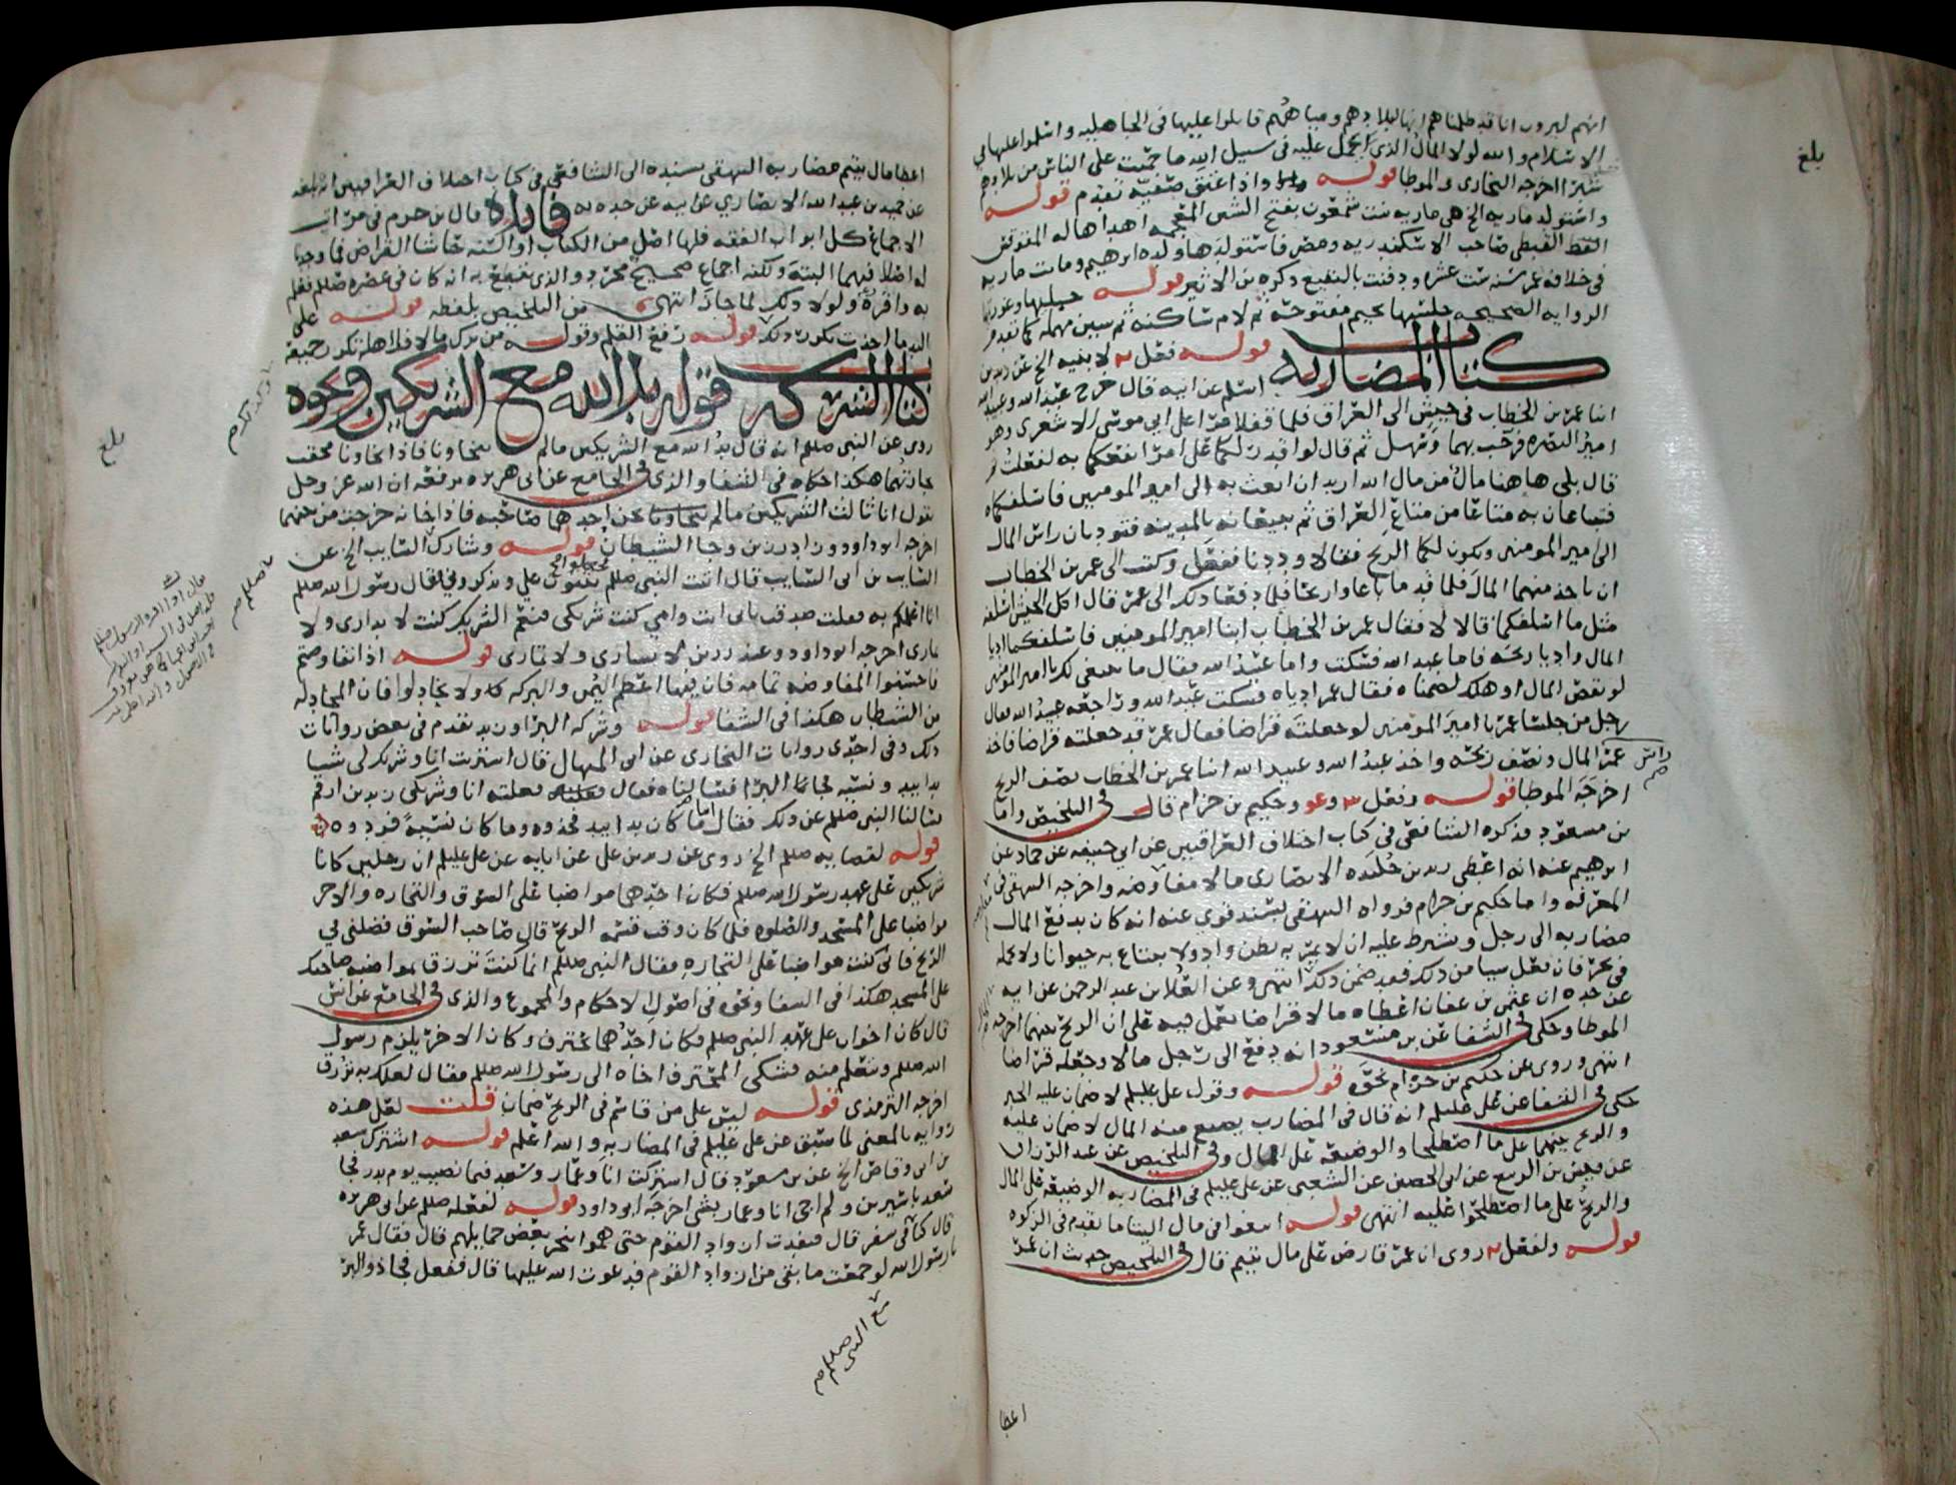 انهم ليرون انا قد ظلمناهم انها لبلادهم ومياههم قاتلوا عليها في الجاهليه واسلموا عليها في
الاسلام والله لولا المال الذي احمل عليه في سبيل الله ما حميت على الناس من بلادهم
شبرا اخرجه البخاري والموطا قوله واذا اعتق صفيه تقدم قوله
واستولد ماريه الخ هي ماريه بنت شمعون بفتح الشين المعجمه اهداها له المقوقس
القبطي صاحب الاسكندريه ومصر فاستولدها ولده ابرهيم وماتت ماريه
في خلافه عمر سنه ست عشر ودفنت بالبقيع ذكره بن الاثير قوله
الروايه الصحيحه جلسيها بجيم مفتوحة ثم لام ساكنة ثم سين مهمله كما تقدم
كتاب المضاربه قوله فعل لابنيه الخ عن زيد بن
اسلم عن ابيه قال خرج عبد الله وعبيد الله
ابنا عمر بن الخطاب في جيش الى العراق فلما قفلا مرا على ابي موسى الاشعري وهو
امير البصره فرحب بهما وسهل ثم قال لو اقدر لكما على امر انفعكما به لفعلت ثم
قال بلى هاهنا مال من مال الله اريد ان ابعث به الى امير المومنين فاسلفكماه
فتبتاعان به متاعا من متاع العراق ثم تبيعانه بالمدينه فتوديان راس المال
الى امير المومنين ويكون لكما الربح فقالا وددنا ففعل وكتب الى عمر بن الخطاب
ان ياخذ منهما المال فلما قدما باعا واربحا فلما دفعا ذلك الى عمر قال اكل الجيش اسلفه
مثل ما اسلفكما قالا لا فقال عمر بن الخطاب ابنا امير المومنين فاسلفكما اديا
المال واديا ربحه فاما عبد الله فسكت واما عبيد الله فقال ما ينبغي لك يا امير المومنين
لو نقص المال او هلك لضمناه فقال عمر ادياه فسكت عبد الله وراجعه عبيد الله فقال
رجل من جلسا عمر يا امير المومنين لو جعلته قراضا فقال عمر قد جعلته قراضا فاخذ
عمر المال ونصف ربحه واخذ عبد الله وعبيد الله ابنا عمر بن الخطاب نصف الربح
راس
اخرجه الموطا قوله وفعل وحكيم بن حزام قال في التلخيص واما
بن مسعود فذكره الشافعي في كتاب اختلاف العراقيين عن ابي حنيفه عن حماد عن
ابرهيم عنه انه اعطى زيد بن خليده الانصاري مالا مقارضه واخرجه البيهقي في
المعرفه واما حكيم بن حزام فرواه البيهقي بسند قوي عنه انه كان يدفع المال
مضاربه الى رجل ويشرط عليه ان لا يمر به بطن واد ولا يبتاع به حيوانا ولا يحمله
في بحر فان فعل شيا من ذلك فقد ضمن ذلك انتهى وعن العلا بن عبد الرحمن عن ابيه
عن جده ان عثمن بن عفان اعطاه مالا قراضا يعمل فيه على ان الربح بينهما اخرجه
الموطا وحكى في الشفا عن بن مسعود انه دفع الى رجل مالا وجعله قراضا
انتهى وروى عن حكيم بن حزام نحوه قوله وقول على عليلم لا ضمان عليه الخبر
حكى في الشفا عن على عليلم انه قال في المضارب يضيع منه المال لا ضمان عليه
والربح بينهما على ما اصطلحا والوضيعه على المال وفي التلخيص عن عبد الرزاق
عن قيس بن الربيع عن ابي الحصين عن الشعبي عن على عليلم في المضاربه الوضيعه على المال
والربح على ما اصطلحوا عليه انتهى قوله ابتغوا في مال اليتاما تقدم في الزكوه
قوله ولفعل روى ان عمر قارض على مال يتيم قال في التلخيص حديث ان عمر
اعطا
بلغ
اعطا مال يتيم مضاربه البيهقي بسنده الى الشافعي في كتاب اختلاف العراقيين انه بلغه
عن حميد بن عبد الله الانصاري عن ابيه عن جده به فائدة قال بن حزم في مراتب
الاجماع كل ابواب الفقه فلها اصل من الكتاب او السنه حاشا القراض فما وجدنا
له اصلا فيهما البتة ولكنه اجماع صحيح مجرد والذي نقطع به انه كان في عصره صللم فعلم
به واقره ولولا ذلك لما جاز انتهى من التلخيص بلفظه قوله على
اليد ما اخذت تكرر ذلك قوله رفع القلم وقوله من ترك مالا فلاهله تكرر جميعه
كتاب الشركه قوله يد الله مع الشريكين ونحوه
روى عن النبي صللم انه قال يد الله مع الشريكين مالم يتخاونا فاذا تخاونا محقت
تجارتهما هكذا حكاه في الشفا والذي في الجامع عن ابي هريره يرفعه ان الله عز وجل
يقول انا ثالث الشريكين مالم يخن احدهما صاحبه فاذا خانه خرجت من بينهما
اخرجه ابو داود وزاد رزين وجا الشيطان قوله وشارك السايب الخ عن
السايب بن ابي السايب قال اتيت النبي صللم يثنون علي ويذكروني فقال رسول الله صللم
انا اعلمكم به فقلت صدقت بابي انت وامي كنت شريكي فنعم الشريك كنت لا تداري ولا
تماري اخرجه ابو داود وعند رزين لا تشاري ولا تماري قوله اذا تفاوضتم
فاحسنوا المفاوضه تمامه فان فيها اعظم اليمن والبركه ولا تجادلوا فان المجادله
من الشيطان هكذا في الشفا قوله وشركه البرا وزيد تقدم في بعض روايات
ذلك وفي احدى روايات البخاري عن ابي المنهال قال اشتريت انا وشريك لي شيا
يدا بيد ونسيه فجانا البرا فسالناه فقال فعلته انا وشريكي زيد بن ارقم
فسالنا النبي صللم عن ذلك فقال اما ما كان يدا بيد فخذوه وما كان نسيه فردوه
قوله لقضايه صللم الخ روى عن زيد بن علي عن ابايه عن علي عليلم ان رجلين كانا
شريكين على عهد رسول الله صللم فكان احدهما مواضبا على السوق والتجاره والاخر
مواضبا على المسجد والصلوه فلما كان وقت قسمه الربح قال صاحب السوق فضلني في
الربح فاني كنت مواضبا على التجاره فقال النبي صللم انما كنت ترزق بمواضبه صاحبك
على المسجد هكذا في الشفا ونحوه في اصول الاحكام والمجموع والذي في الجامع عن انس
قال كان اخوان على عهد النبي صللم فكان احدهما يحترف وكان الاخر يلزم رسول
الله صللم ويتعلم منه فشكى المحترف اخاه الى رسول الله صللم فقال لعلك به ترزق
اخرجه الترمذي قوله ليس على من قاسم في الربح ضمان قلت لعل هذه
روايه بالمعنى لما سبق عن علي عليلم في المضاربه والله اعلم قوله اشترك سعد
بن ابي وقاص الخ عن بن مسعود قال اشتركت انا وعمار وسعد فيما نصيب يوم بدر فجا
سعد باسيرين ولم اجي انا وعمار بشي اخرجه ابو داود قوله لفعله صللم عن ابي هريره
قال كنا في سفر قال فنفدت ازواد القوم حتى هموا بنحر بعض حمايلهم قال فقال عمر
يا رسول الله لو جمعت ما بقي من ازواد القوم فدعوت الله عليها قال ففعل فجا ذو البر
مع النبي صللم
بلغ